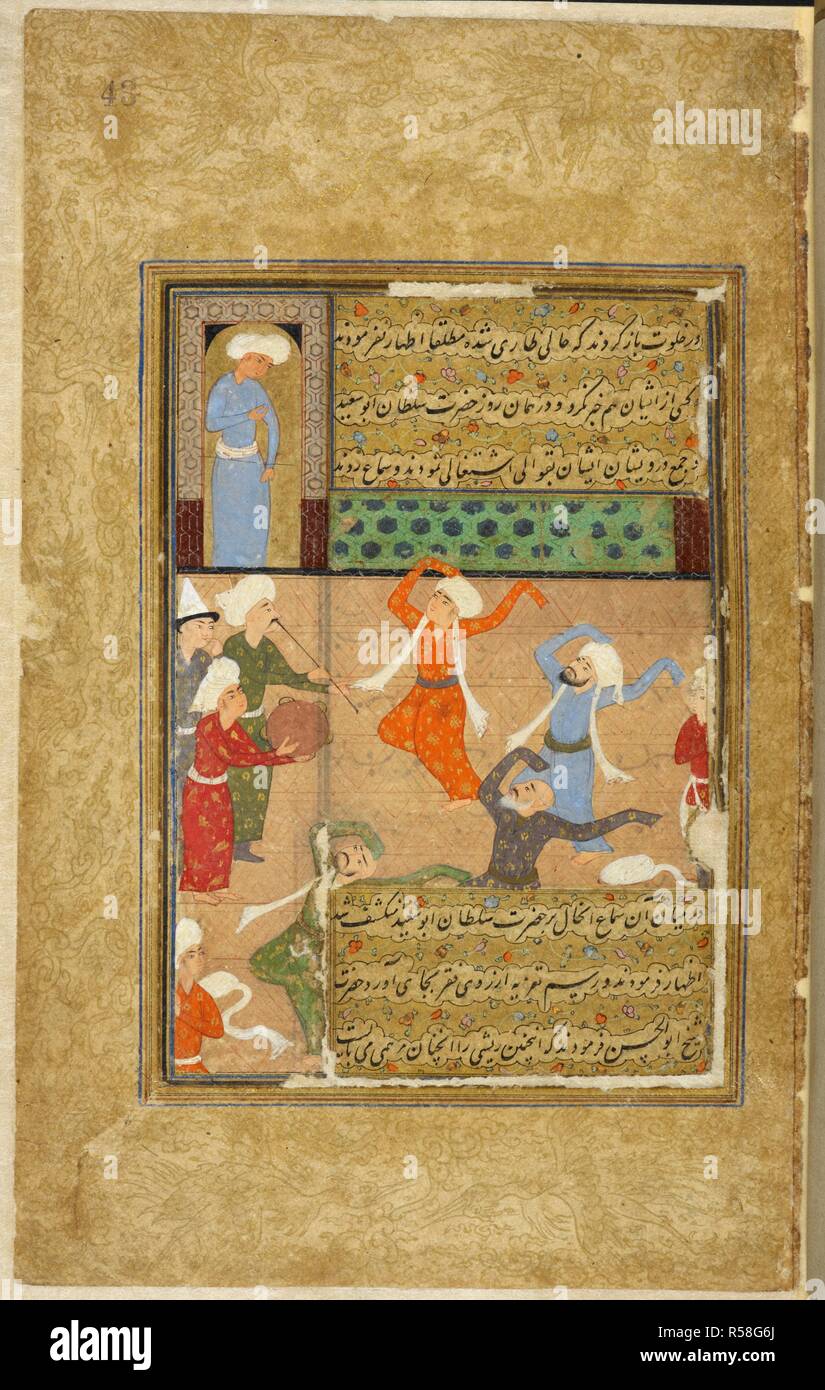 48
در خلوت باز کردند که حالی طاری شده مطلقا اظهار نفرمودند
کسی از ایشان هم خبر نکرد و در همان روز حضرت سلطان ابوسعید
و جمع درویشان ایشان بقوالی اشتغالی نمودند و سماع زدند
در میان آن سماع الحال بر حضرت سلطان ابوسعید منکشف شد
اظهار فرمودند و رسم تعزیه ارزوی فقر بجای آورد حضرت
شیخ ابوالحسن فرمودند که انچنین ریشی را انچنان مرهمی می بایست
alamy
a
alamy stock photo
R58G6J
www.alamy.com